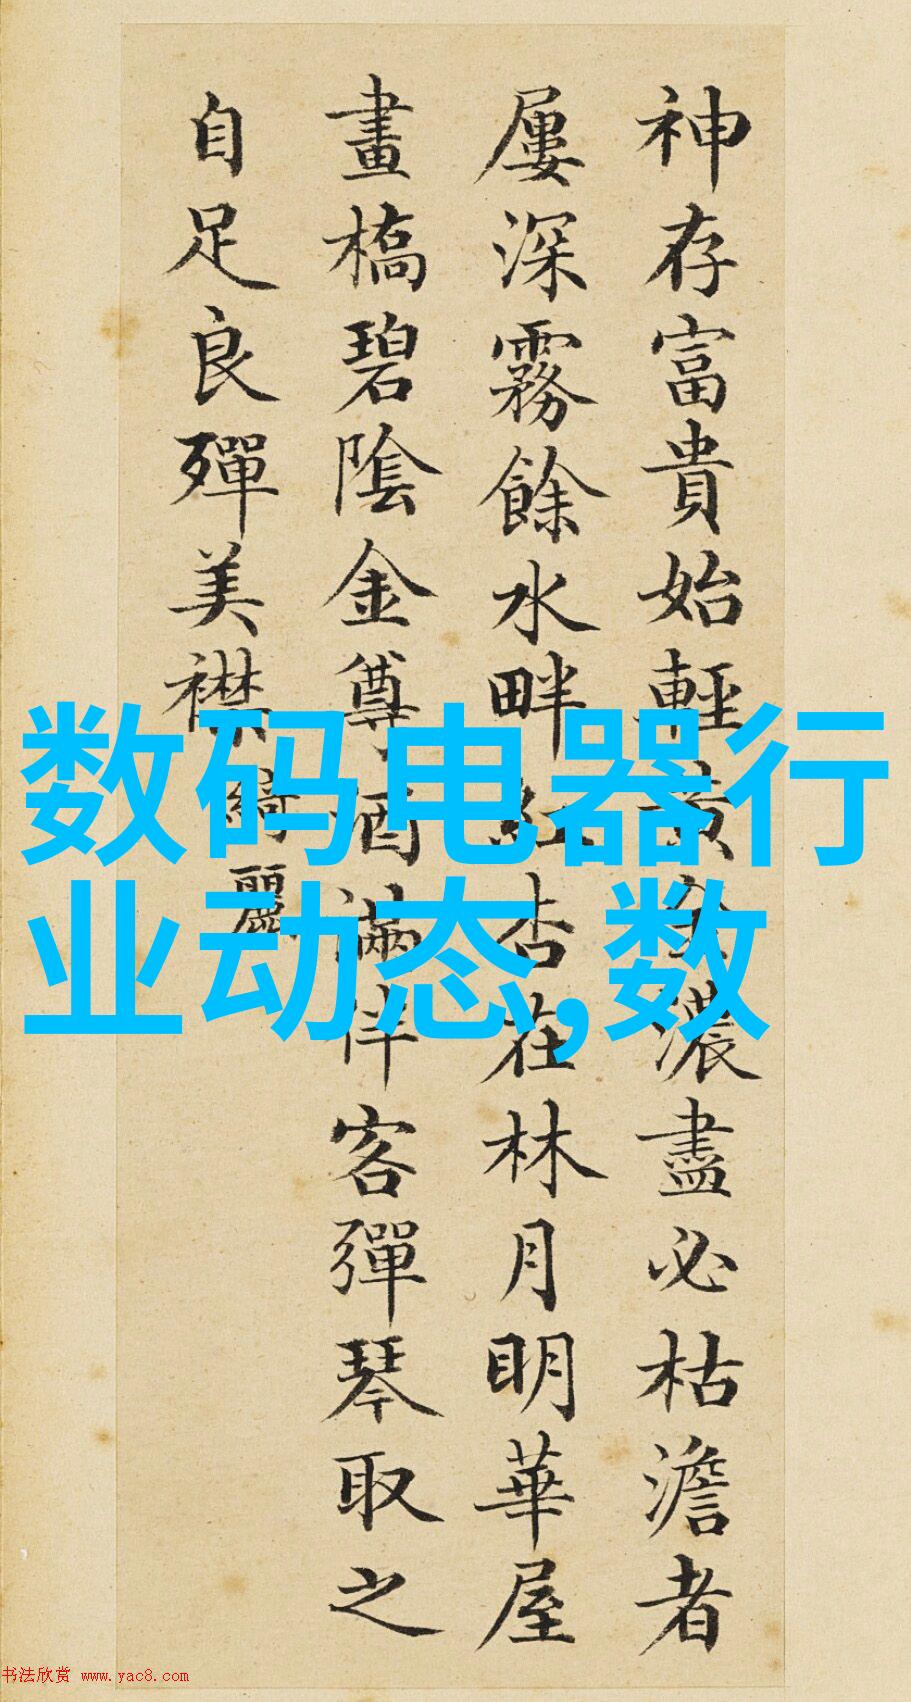 神存富貴始輕黃金濃盡必枯澹者
屢深霧餘水畔紅杏在林月明華屋
畫橋碧陰金尊酒滿伴客彈琴取之
自足良殫美襟
綺麗
数码电器行
业动态,数
书法欣赏 www.yac8.com